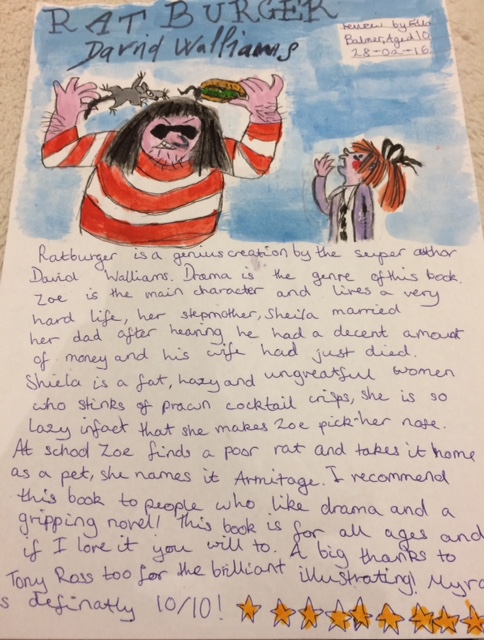 RATBURGER
David Walliams
review by Ella
Palmer, Aged 10
28-02-16
Ratburger is a genius creation by the super author
David Walliams. Drama is the genre of this book.
Zoe is the main character and lives a very
hard life, her stepmother, Sheila married
her dad after hearing he had a decent amount
of money and his wife had just died.
Shiela is a fat, lazy and ungreatful women
who stinks of prawn cocktail crisps, she is so
lazy infact that she makes Zoe pick her nose.
At school Zoe finds a poor rat and takes it home
as a pet, she names it Armitage. I recommend
this book to people who like drama and a
gripping novel! This book is for all ages and
if I love it you will to. A big thanks to
Tony Ross too for the brilliant illustrating! My ra
s definatly 10/10!